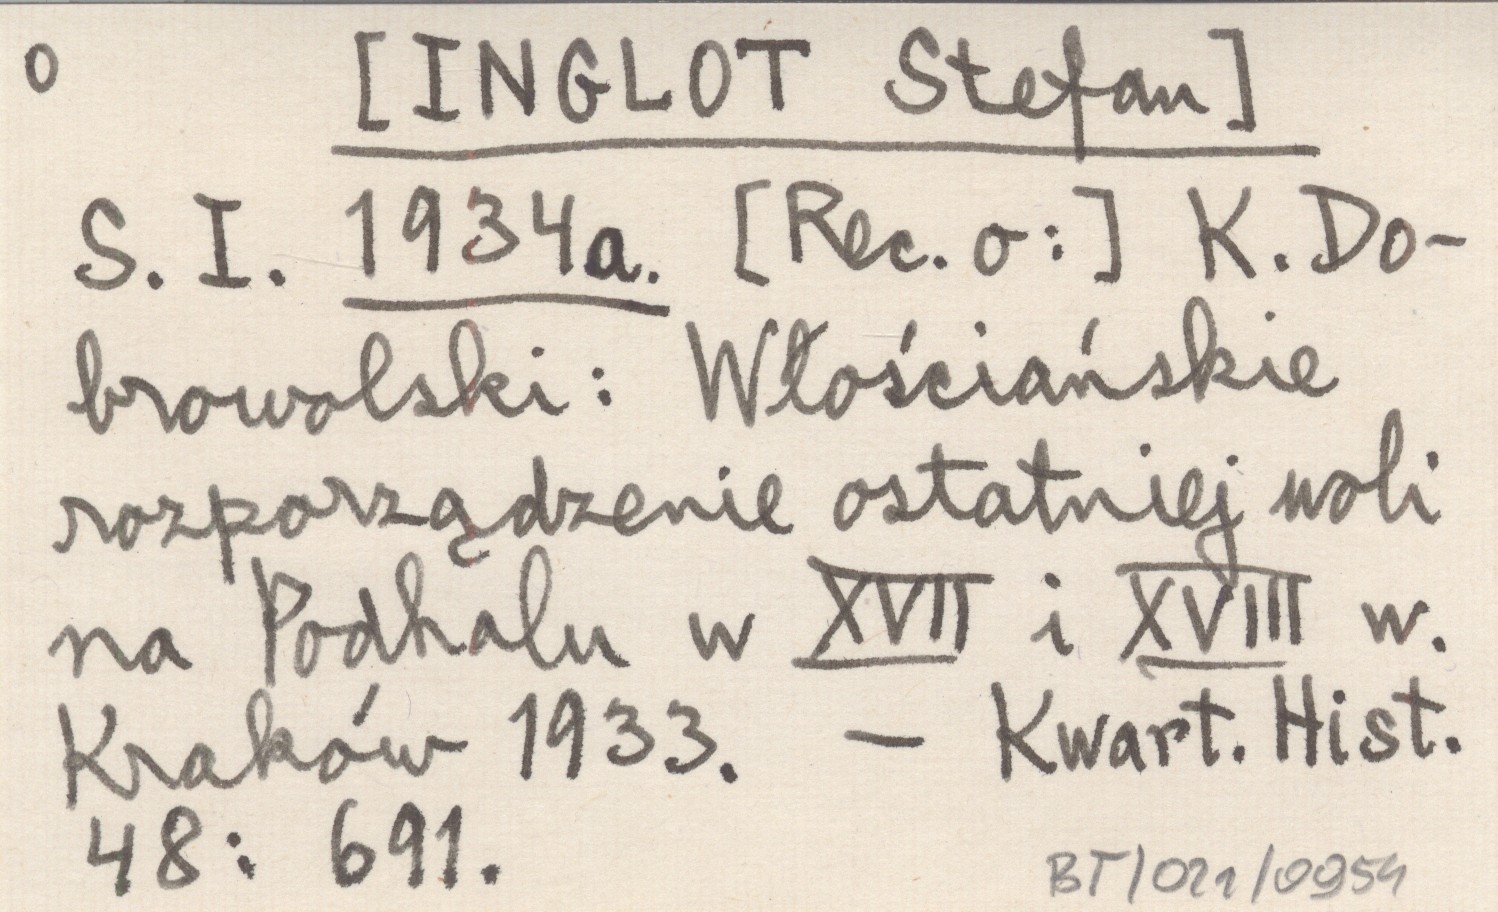 o [INGLOT Stefan]
S. I. 1934a. [Rec. o:] K. Do-
browolski: Włościańskie
rozporządzenie ostatniej woli
na Podhalu w XVII i XVIII w.
Kraków 1933. — Kwart. Hist.
48: 691.
BT/021/0954